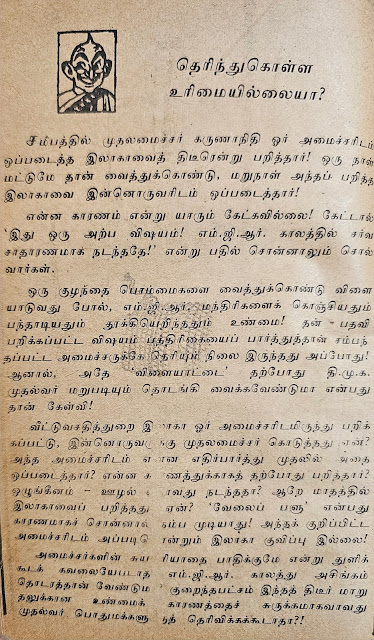 தெரிந்துகொள்ள
உரிமையில்லையா?
சமீபத்தில் முதலமைச்சர் கருணாநிதி ஓர் அமைச்சரிடம்
ஒப்படைத்த இலாகாவைத் திடீரென்று பறித்தார்! ஒரு நாள்
மட்டுமே தான் வைத்துக்கொண்டு, மறுநாள் அந்தப் பறித்த
இலாகாவை இன்னொருவரிடம் ஒப்படைத்தார்!
என்ன காரணம் என்று யாரும் கேட்கவில்லை! கேட்டால்
'இது ஒரு அற்ப விஷயம்! எம்.ஜி.ஆர். காலத்தில் சர்வ
சாதாரணமாக நடந்ததே!' என்று பதில் சொன்னாலும் சொல்
வார்கள்.
ஒரு குழந்தை பொம்மைகளை வைத்துக்கொண்டு விளை
யாடுவது போல், எம்.ஜி.ஆர். மந்திரிகளைக் கொஞ்சியதும்
பந்தாடியதும் தூக்கியெறிந்ததும் உண்மை! தன் பதவி
பறிக்கப்பட்ட விஷயம் பத்திரிகையைப் பார்த்துத்தான் சம்பந்
தப்பட்ட அமைச்சருக்கே தெரியும் நிலை இருந்தது அப்போது!
ஆனால், அதே 'விளையாட்டை' தற்போது தி.மு.க.
முதல்வர் மறுபடியும் தொடங்கி வைக்கவேண்டுமா என்பது
தான் கேள்வி!
வீட்டுவசதித்துறை இலாகா ஓர் அமைச்சரிடமிருந்து பறிக்
கப்பட்டு, இன்னொருவருக்கு முதலமைச்சர் கொடுத்தது ஏன்?
அந்த அமைச்சரிடம் என்ன எதிர்பார்த்து முதலில் அதை
ஒப்படைத்தார்? என்ன காரணத்துக்காகத் தற்போது பறித்தார்?
ஒழுங்கீனம் - ஊழல் ஏதாவது நடந்ததா? ஆறே மாதத்தில்
இலாகாவைப் பறித்தது ஏன்? 'வேலைப் பளு' என்பது
காரணமாகச் சொன்னால் நம்ப முடியாது! அந்தக் குறிப்பிட்ட
அமைச்சரிடம் அப்படியொன்றும் இலாகா குவிப்பு இல்லை!
அமைச்சர்களின் சுயமரியாதை பாதிக்குமே என்று துளிக்
கூடக் கவலையேபடாத எம்.ஜி.ஆர். காலத்து அசிங்கம்
தொடரத்தான் வேண்டுமா? குறைந்தபட்சம் இந்தத் திடீர் மாறு
தலுக்கான உண்மைக் காரணத்தைச் சுருக்கமாகவாவது
முதல்வர் பொதுமக்களுக்குத் தெரிவிக்கக்கூடாதா?!